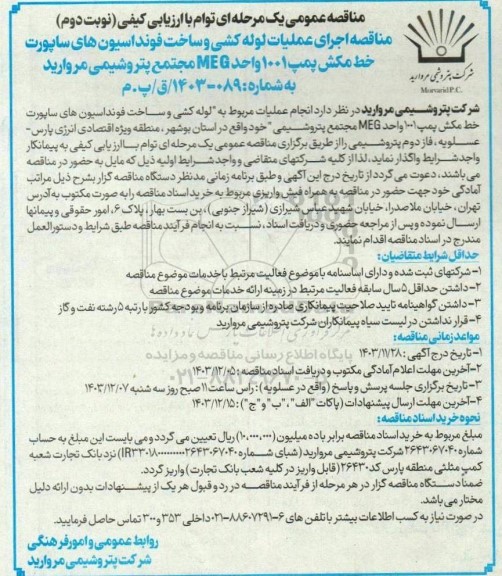 مناقصه عمومی یک مرحله ای توام با ارزیابی کیفی (نوبت دوم)
مناقصه اجرای عملیات لوله کشی و ساخت فونداسیون های ساپورت
خط مکش پمپ ۱۰۰۱ واحد MEG مجتمع پتروشیمی مروارید
به شماره: ۰۸۹-۱۴۰۳/ق/پ.م
شرکت پتروشیمی مروارید
Morvarid P.C.
شرکت پتروشیمی مروارید در نظر دارد انجام عملیات مربوط به "لوله کشی و ساخت فونداسیون های ساپورت
خط مکش پمپ ۱۰۰۱ واحد MEG مجتمع پتروشیمی" خود واقع در استان بوشهر، منطقه ویژه اقتصادی انرژی پارس-
عسلویه، فاز دوم پتروشیمی را از طریق برگزاری مناقصه عمومی یک مرحله ای توام با ارزیابی کیفی به پیمانکار
واجد شرایط واگذار نماید. لذا از کلیه شرکتهای متقاضی و واجد شرایط اولیه ذیل که مایل به حضور در مناقصه
می باشند، دعوت می گردد از تاریخ درج این آگهی و طبق برنامه زمانی مدنظر دستگاه مناقصه گزار بشرح ذیل مراتب
آمادگی خود جهت حضور در مناقصه به همراه فیش واریزی مربوط به خرید اسناد مناقصه را به صورت مکتوب به آدرس
تهران، خیابان ملاصدرا، خیابان شهید عباس شیرازی (شیراز جنوبی)، بن بست بهار، پلاک ۶، امور حقوقی و پیمانها
ارسال نموده و پس از مراجعه حضوری و دریافت اسناد، نسبت به انجام فرآیند مناقصه طبق شرایط و دستورالعمل
مندرج در اسناد مناقصه اقدام نمایند.
حداقل شرایط متقاضیان:
۱- شرکتهای ثبت شده و دارای اساسنامه با موضوع فعالیت مرتبط با خدمات موضوع مناقصه
۲- داشتن حداقل ۵ سال سابقه فعالیت مرتبط در زمینه ارائه خدمات موضوع مناقصه
۳- داشتن گواهینامه تایید صلاحیت پیمانکاری صادره از سازمان برنامه و بودجه کشور با رتبه ۵ رشته نفت و گاز
۴- قرار نداشتن در لیست سیاه پیمانکاران شرکت پتروشیمی مروارید
مواعد زمانی مناقصه:
۱- تاریخ درج آگهی: ۱۴۰۳/۱۱/۲۸
۲- آخرین مهلت اعلام آمادگی مکتوب و دریافت اسناد مناقصه: ۱۴۰۳/۱۲/۰۵
۳- تاریخ برگزاری جلسه پرسش و پاسخ (واقع در عسلویه): راس ساعت ۱۱ صبح روز سه شنبه ۱۴۰۳/۱۲/۰۷
۴- آخرین مهلت ارسال پیشنهادات (پاکات "الف"، "ب" و "ج"): ۱۴۰۳/۱۲/۱۵
نحوه خرید اسناد مناقصه:
مبلغ مربوط به خرید اسناد مناقصه برابر با ده میلیون (۱۰,۰۰۰,۰۰۰) ریال تعیین می گردد و می بایست این مبلغ به حساب
شماره ۲۶۴۳۰۶۷۰۴۰ شرکت پتروشیمی مروارید (شبای شماره) نزد بانک تجارت شعبه
کمپ مثلثی منطقه پارس کد ۲۶۴۳۰ (قابل واریز در کلیه شعب بانک تجارت) واریز گردد.
ضمنا دستگاه مناقصه گزار در هر مرحله از فرآیند مناقصه در رد و قبول هر یک از پیشنهادات بدون ارائه دلیل
مختار می باشد.
در صورت نیاز به کسب اطلاعات بیشتر با تلفن های ۶-۸۸۶۰۷۲۹۱-۰۲۱ داخلی ۳۵۳ و ۳۰۰ تماس حاصل فرمایید.
روابط عمومی و امور فرهنگی
شرکت پتروشیمی مروارید